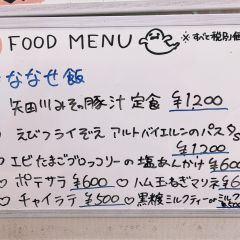 FOOD MENU ※すべて税別価
ななせ飯
矢田川みその豚汁 定食 ¥1,200
えびフライぞえ アルトバイエルンのパスタ
¥1,200
エビたまごブロッコリーの塩あんかけ ¥600
♡ ポテサラ ¥600 ♡ ハム玉ねぎマリネ ¥6
♡ チャイラテ ¥500 ♡ 黒糖ミルクティー or ミルク